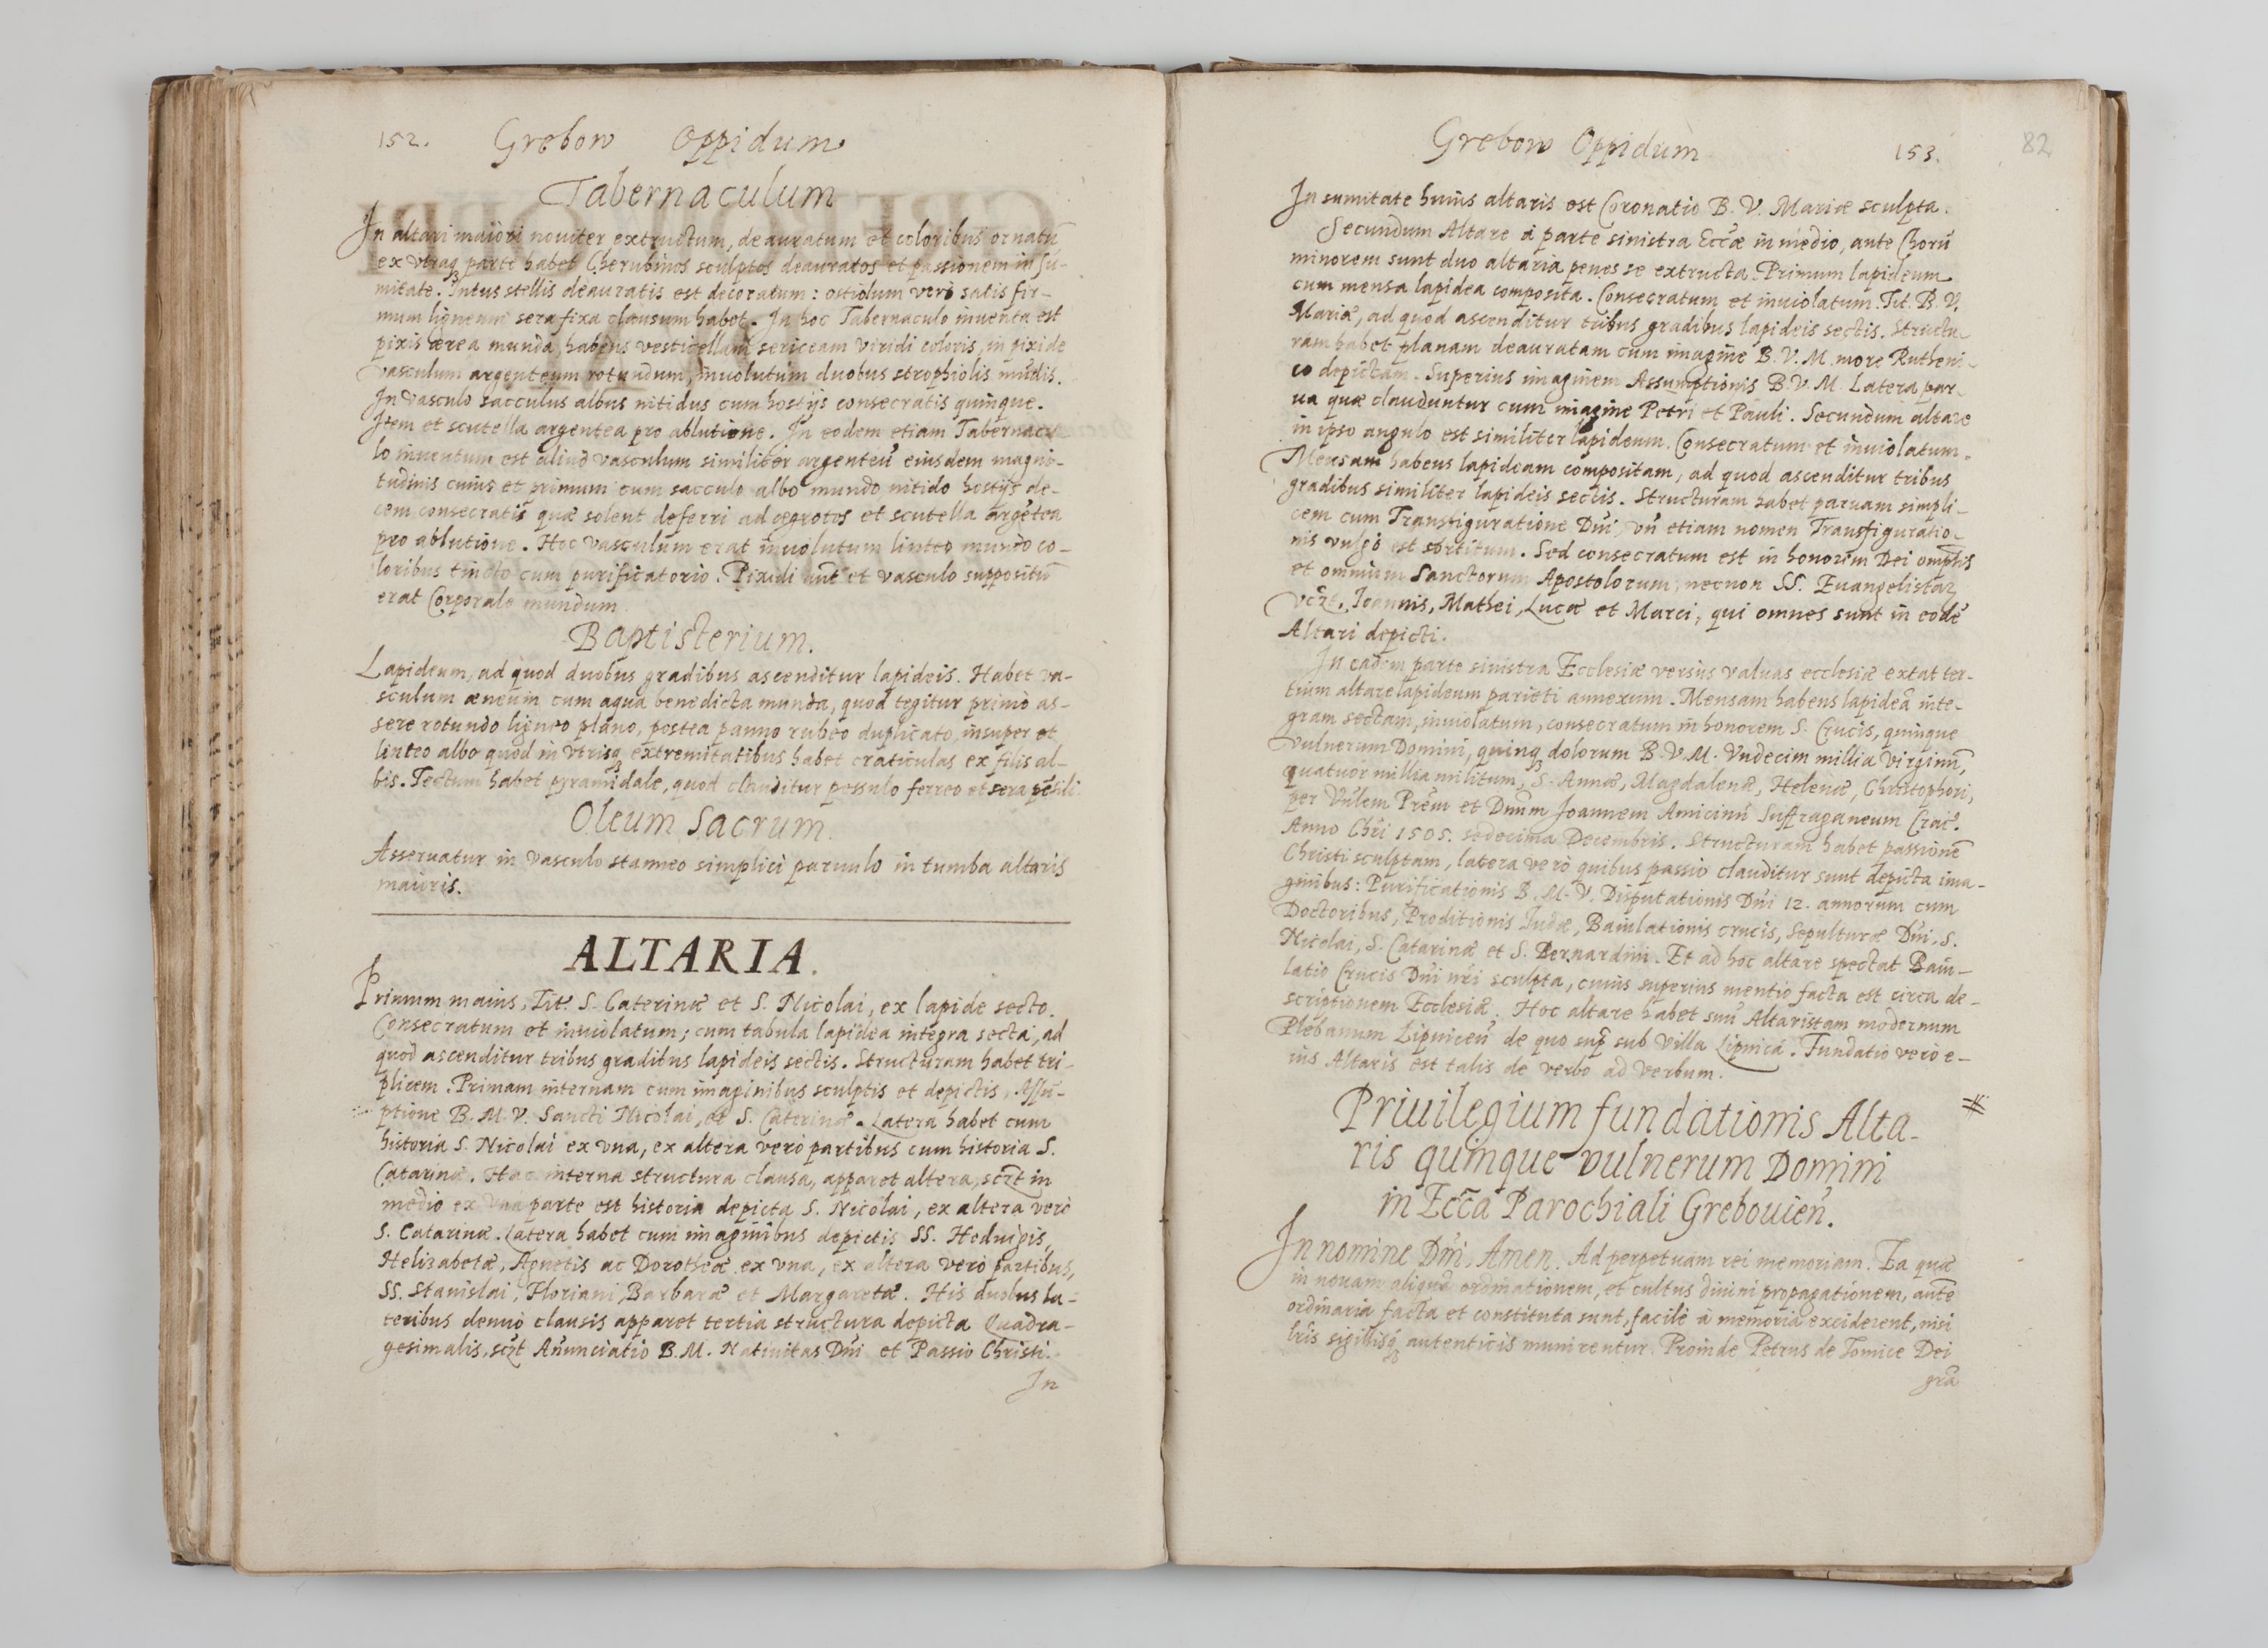 152. Grebow Oppidum
Tabernaculum
In altari maiori nouiter extructum, deauratum et coloribus ornatū
ex vtraq; parte habet Cherubinos sculptos deauratos et passionem in su-
mitate. Intus stellis deauratis est decoratum: ostiolum verò satis fir-
mum ligneum sera fixa clausum habet. In hoc Tabernaculo inuenta est
pixis ærea munda, habens vesticellam sericeam viridi coloris, in pixide
vasculum argenteum rotundum, inuolutum duobus strophiolis mūdis.
In vasculo sacculus albus nitidus cum hostijs consecratis quinque.
Item et scutella argentea pro ablutione. In eodem etiam Tabernacu-
lo inuentum est aliud vasculum similiter argenteū eiusdem magni-
tudinis cuius et primum cum sacculo albo mundo nitido hostijs de-
cem consecratis quæ solent deferri ad ægrotos et scutella argētea
pro ablutione. Hoc vasculum erat inuolutum linteo mundo co-
loribus tincto cum purificatorio. Pixidi aūt et vasculo suppositū
erat Corporale mundum
Baptisterium.
Lapideum, ad quod duobus gradibus ascenditur lapideis. Habet va-
sculum æneum cum aqua benedicta munda, quod tegitur primò as-
sere rotundo ligneo plano, postea panno rubeo duplicato, insuper et
linteo albo quod in vtrisq; extremitatibus habet craticulas ex filis al-
bis. Tectum habet pyramidale, quod clauditur pessulo ferreo et sera pēsili
Oleum Sacrum.
Asseruatur in vasculo stanneo simplici paruulo in tumba altaris
maioris.
ALTARIA.
Primum maius, Tit. S. Caterinæ et S. Nicolai, ex lapide secto.
Consecratum et inuiolatum; cum tabula lapidea integra secta, ad
quod ascenditur tribus gradibus lapideis sectis. Structuram habet tri-
plicem. Primam internam cum imaginibus sculptis et depictis, Assū-
ptione B. M. V. Sancti Nicolai, et S. Caterinæ. Latera habet cum
historia S. Nicolai ex vna, ex altera verò partibus cum historia S.
Catarinæ. Hac interna structura clausa, apparet altera, sczt in
medio ex vna parte est historia depicta S. Nicolai, ex altera verò
S. Catarinæ. Latera habet cum imaginibus depictis SS. Heduigis,
Helizabetæ, Agnetis ac Dorotheæ ex vna, ex altera verò partibus,
SS. Stanislai, Floriani, Barbaræ et Margaretæ. His duobus la-
teribus denuò clausis apparet tertia structura depicta Quadra-
gesimalis, sczt Añunciatio B. M. Natiuitas Dñi et Passio Christi.
In
Grebow Oppidum 153.
82
In sumitate huius altaris est Coronatio B. V. Mariæ sculpta.
Secundum Altare à parte sinistra Eccæ in medio, ante Chorū
minorem sunt duo altaria penes se extructa. Primum lapideum
cum mensa lapidea composita. Consecratum et inuiolatum. Tit. B. V.
Mariæ, ad quod ascenditur tribus gradibus lapideis sectis. Structu-
ram habet planam deauratam cum imagine B. V. M. more Rutheni-
co depictam. Superius imaginem Assumptionis B. V. M. Latera par-
ua quæ clauduntur cum imagine Petri et Pauli. Secundum altare
in ipso angulo est similiter lapideum. Consecratum et inuiolatum.
Mensam habens lapideam compositam, ad quod ascenditur tribus
gradibus similiter lapideis sectis. Structuram habet paruam simpli-
cem cum Transfiguratione Dñi, vñ etiam nomen Transfiguratio-
nis vulgò est sortitum. Sed consecratum est in honorem Dei omptis
et omnium Sanctorum Apostolorum, necnon SS. Euangelistaꝝ
vczt. Joannis, Mathei, Lucæ et Marci, qui omnes sunt in eodē
Altari depicti.
In eadem parte sinistra Ecclesiæ versus valuas ecclesiæ extat ter-
tium altare lapideum parieti annexum. Mensam habens lapideā inte-
gram sectam, inuiolatum, consecratum in honorem S. Crucis, quinque
vulnerum Domini, quinq; dolorum B. V. M. Vndecim millia virginū,
quatuor millia militum, S. Annæ, Magdalenæ, Helenæ, Christophori,
per Vñlem Prēm et Dnūm Joannem Amicinū Suffraganeum Crac.
Anno Chrī 1505. sedecima Decembris. Structuram habet passionē
Christi sculptam, latera verò quibus passio clauditur sunt depicta ima-
ginibus: Purificationis B. M. V. Disputationis Dñi 12. annorum cum
Doctoribus, Proditionis Judæ, Baiulationis crucis, Sepulturæ Dñi, S.
Nicolai, S. Catarinæ et S. Bernardini. Et ad hoc altare spectat Baiu-
latio Crucis Dñi nri sculpta, cuius superius mentio facta est circa de-
scriptionem Ecclesiæ. Hoc altare habet suū Altaristam modernum
Plebanum Lipnicen̄ de quo sup̄ sub villa Lipnica. Fundatio verò e-
ius Altaris est talis de verbo ad verbum.
Priuilegium fundationis Alta-
ris quinque vulnerum Domini
in Eccā Parochiali Grebouien̄.
In nomine Dñi, Amen. Ad perpetuam rei memoriam. Ea quæ
in nouam aliquā ordinationem, et cultus diuini propagationem, autē
ordinaria facta et constituta sunt, facilè à memoria exciderent, nisi
lris sigillisq; autenticis munirentur. Proinde Petrus de Tomice Dei
grā